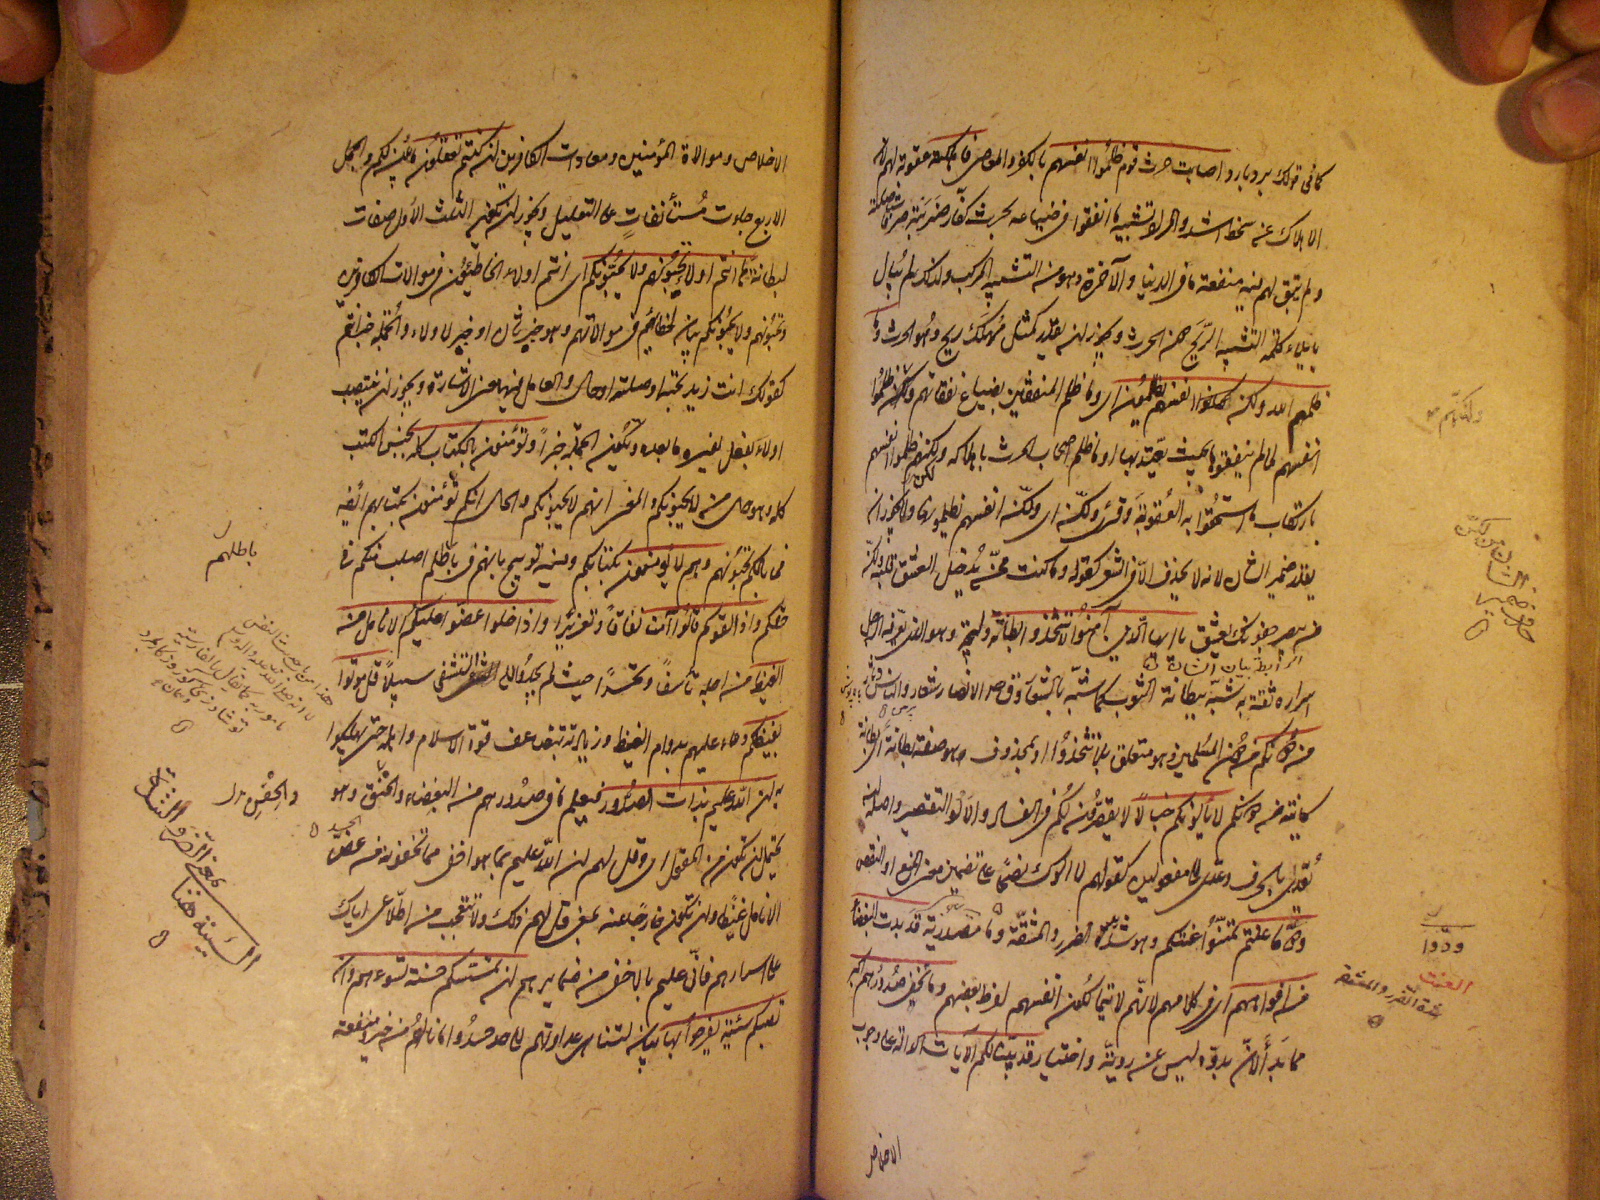 كما في قولك برد بارد اصابت حرث قوم ظلموا انفسهم بالكفر والمعاصي فاهلكته عقوبة لهم لان
الاهلاك عن سخط اشد والمراد تشبيه ما انفقوا في ضياعه بحرث كفار ضربته صر فاستأصلته
ولم يبق لهم فيه منفعة ما في الدنيا والآخرة وهو من التشبيه المركب ولذلك لم يبال
بايلاء كلمة التشبيه الريح دون الحرث ويجوز ان يقدر كمثل مهلك ريح وهو الحرث وما
ظلمهم الله ولكن كانوا انفسهم يظلمون اي وما ظلم المنفقين بضياع نفقاتهم ولكنهم ظلموا
انفسهم لما لم ينفقوها بحيث يعتد بها او ما ظلم اصحاب الحرث باهلاكه ولكنهم ظلموا انفسهم
بارتكاب ما استحقوا به العقوبة وقرئ ولكن اي ولكن انفسهم يظلمونها ولا يجوز ان
يقدر ضمير الشان لانه لا يحذف الا في الشعر كقوله وما كنت ممن يدخل العشق قلبه ولكن
من يبصر جفونك يعشق يا ايها الذين آمنوا لا تتخذوا بطانة وليجة وهو الذي يعرفه الرجل
اسراره ثقة به شبه ببطانة الثوب كما شبه بالشعار قوله الانصار شعار والناس دثار
من دونكم من دون المسلمين وهو متعلق بلا تتخذوا او بمحذوف هو صفة بطانة اي بطانة
كائنة من دونكم لا يألونكم خبالا لا يقصرون لكم في الفساد والالو التقصير واصله ان
يعدى بالحرف وعدي الى مفعولين كقولهم لا آلوك نصحا على تضمين معنى المنع او النقص
ودوا ما عنتم تمنوا عنتكم وهو شدة الضرر والمشقة وما مصدرية قد بدت البغضاء
من افواههم اي في كلامهم لانهم لا يتمالكون انفسهم لفرط بغضهم وما تخفي صدورهم اكبر
مما بدأ لان بدوه ليس عن روية واختيار قد بينا لكم الآيات الدالة على وجوب
ولكنهم
العنت
شدة الضرر والمشقة
ودوا
الاخلاص وموالاة المؤمنين ومعادات الكافرين ان كنتم تعقلون ما بين لكم والجمل
الاربع جاءت مستأنفات على التعليل ويجوز ان يكون الثلث الأول صفات
لبطانة ها انتم اولاء تحبونهم ولا يحبونكم اي انتم اولاء الخاطئون في موالات الكافرين
وتحبونهم ولا يحبونكم بيان لخطائهم في موالاتهم وهو خبر ثان او خبر لاولاء والجملة خبر انتم
كقولك انت زيد تحبه او صلته او حال والعامل فيها معنى الاشارة ويجوز ان ينتصب
اولاء بفعل يفسره ما بعده وتكون الجملة خبرا وتؤمنون بالكتاب كله بجنس الكتب
كله وهو حال من لا يحبونكم والمعنى انهم لا يحبونكم والحال انكم تؤمنون بكتابهم ايضا
فما بالكم تحبونهم وهم لا يؤمنون بكتابكم وفيه توبيخ بانهم في باطلهم اصلب منكم في
حقكم واذا لقوكم قالوا آمنا نفاقا وتغريرا واذا خلوا عضوا عليكم الانامل من
الغيظ من اجله تاسفا وتحسرا حيث لم يجدوا الى التشفي سبيلا قل موتوا
بغيظكم دعاء عليهم بدوام الغيظ وزيادته بتضاعف قوة الاسلام واهله حتى يهلكوا
به ان الله عليم بذات الصدور فيعلم ما في صدورهم من البغضاء والحنق وهو
يحتمل ان تكون من المقول اي وقل لهم ان الله عليم بما هو اخفى مما تخفونه من عض
الانامل غيظا وان تكون خارجا عنه بمعنى قل لهم ذلك ولا تتعجب من اطلاعي اياك
على اسرارهم فاني عليم بالاخفى من ضمايرهم ان تمسسكم حسنة تسوءهم وان
تصبكم سيئة يفرحوا بها بيان لتناهي عداوتهم الى حد حسدوا ما نالهم من خير ومنفعة
باطلهم